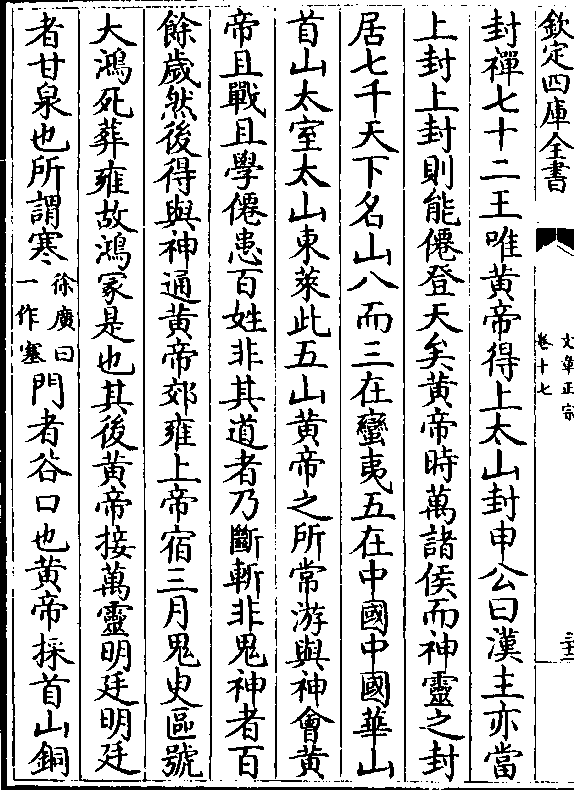 欽定四庫全書
文章正宗
卷十七
封禪七十二王唯黄帝得上太山封申公曰漢主亦當
上封上封則能僊登天矣黄帝時萬諸侯而神靈之封
居七千天下名山八而三在蠻夷五在中國中國華山
首山太室太山東萊此五山黄帝之所常游與神會黄
帝且戰且學僊患百姓非其道者乃斷斬非鬼神者百
餘歲然後得與神通黄帝郊雍上帝宿三月鬼史區號
大鴻死葬雍故鴻冢是也其後黄帝接萬靈明廷明廷
者甘泉也所謂寒徐廣曰一作塞門者谷口也黄帝採首山銅